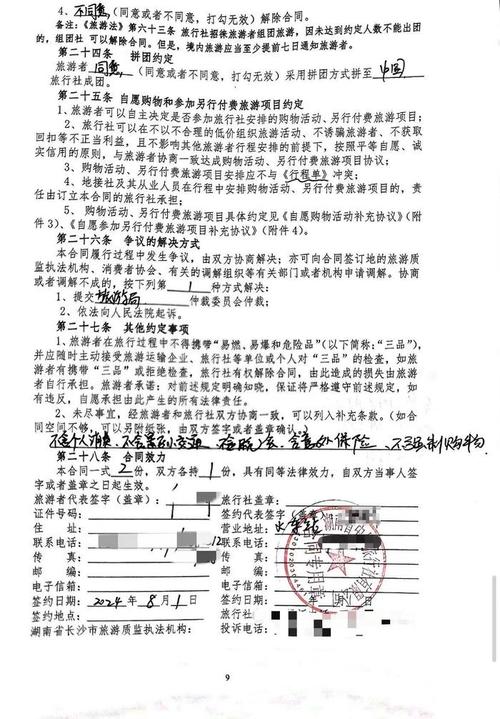 4、不同意(同意或者不同意，打勾无效)解除合同。
备注:《旅游法》第六十三条 旅行社招徕旅游者组团旅游，因未达到约定人数不能出团
的，组团社 可以解除合同。但是，境内旅游应当至少提前七日通知旅游者。
第二十四条 拼团约定
旅游者 同意，(同意或者不同意，打勾无效)采用拼团方式拼至 中国
旅行社成团。
第二十五条 自愿购物和参加另行付费旅游项目约定
1、旅游者可以自主决定是否参加旅行社安排的购物活动、另行付费旅游项目；
2、旅行社可以在不以不合理的低价组织旅游活动、不诱骗旅游者、不获取
回扣等不正当利益，且不影响其他旅游者行程安排的前提下，按照平等自愿、诚
实信用的原则，与旅游者协商一致达成购物活动、另行付费旅游项目协议；
3、购物活动、另行付费旅游项目安排应不与《行程单》冲突；
4、地接社及其从业人员在行程中安排购物活动、另行付费旅游项目的，责
任由订立本合同的旅行社承担；
5、购物活动、另行付费旅游项目具体约定见《自愿购物活动补充协议》(附
件3)、《自愿参加另行付费旅游项目补充协议》(附件4)。
第二十六条 争议的解决方式
本合同履行过程中发生争议，由双方协商解决；亦可向合同签订地的旅游质
监执法机构、消费者协会、有关的调解组织等有关部门或者机构申请调解。协商
或者调解不成的，按下列第 1 种方式解决：
1、提交 旅游局 仲裁委员会仲裁；
2、依法向人民法院起诉。
第二十七条 其他约定事项
1、旅游者在旅行过程中不得携带“易燃、易爆和危险品”(以下简称:“三品”)，
并应随时主动接受旅游运输企业、旅行社等单位或个人对“三品”的检查，如旅
游者有携带“三品”或拒绝检查，旅行社有权解除合同，由此造成的损失由旅游
者自行承担。旅游者承诺：对前述规定明确知晓，保证将严格遵守前述规定，如
有违反，自愿承担由此产生的所有法律责任。
2、未尽事宜，经旅游者和旅行社双方协商一致，可以列入补充条款。(如合
同空间不够，可以另附纸张，由双方签字或者盖章确认。)
不含个人消费 含意外保险 不强制购物
第二十八条 合同效力
本合同一式 2 份，双方各持 1 份，具有同等法律效力，自双方当事人签
字或者盖章之日起生效。
旅游者代表签字(盖章)： 旅行社盖章：
证件号码： 签约代表签字(盖章
住 址： 营业地址：
联系电话： 12 联系电话：
传 真： 传 真：
邮 编： 邮 编：
电子信箱： 电子信箱：
签约日期：2024年8月1日 签约日期： 年 月 日
签约地点： 旅行社
湖南省长沙市旅游质监执法机构： 投诉电话：
合同专用章
9